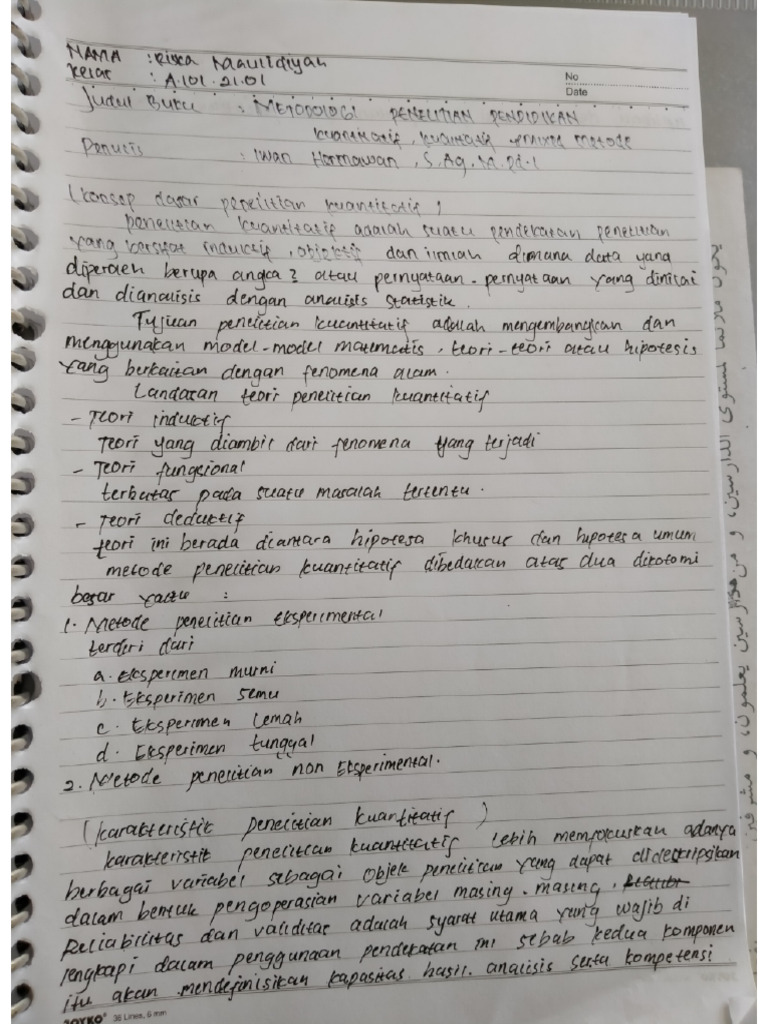 NAMA : Riska Maulidiyah
Kelas : A.101.21.01
No
Date
Judul Buku : METODOLOGI PENELITIAN PENDIDIKAN
kuantitatif, kualitatif mixed metode
Penulis : Iwan Hermawan, S.Ag. M.Pd.I
(konsep dasar penelitian kuantitatif)
penelitian kuantitatif adalah suatu pendekatan penelitian
yang bersifat induktif, objektif dan ilmiah dimana data yang
diperoleh berupa angka2 atau pernyataan-pernyataan yang dinilai
dan dianalisis dengan analisis statistik.
Tujuan penelitian kuantitatif adalah mengembangkan dan
menggunakan model-model matematis, teori-teori atau hipotesis
yang berkaitan dengan fenomena alam.
Landasan teori penelitian kuantitatif
- Teori induktif
Teori yang diambil dari fenomena yang terjadi
- Teori fungsional
terbatas pada suatu masalah tertentu.
- Teori deduktif
teori ini berada diantara hipotesa khusus dan hipotesa umum
metode penelitian kuantitatif dibedakan atas dua dikotomi
besar yaitu :
1. Metode penelitian eksperimental
terderi dari
a. Eksperimen murni
b. Eksperimen semu
c. Eksperimen lemah
d. Eksperimen tunggal
2. Metode penelitian non Eksperimental.
(karakteristik penelitian kuantitatif)
karakteristik penelitian kuantitatif lebih memfokuskan adanya
berbagai variabel sebagai objek penelitian yang dapat dideskripsikan
dalam bentuk pengoperasian variabel masing-masing.
Reliabilitas dan validitas adalah syarat utama yang wajib di
lengkapi dalam penggunaan pendekatan ini sebab kedua komponen
itu akan mendefinisikan kapasitas hasil analisis serta kompetensi
JOYKO 36 Lines, 6 mm